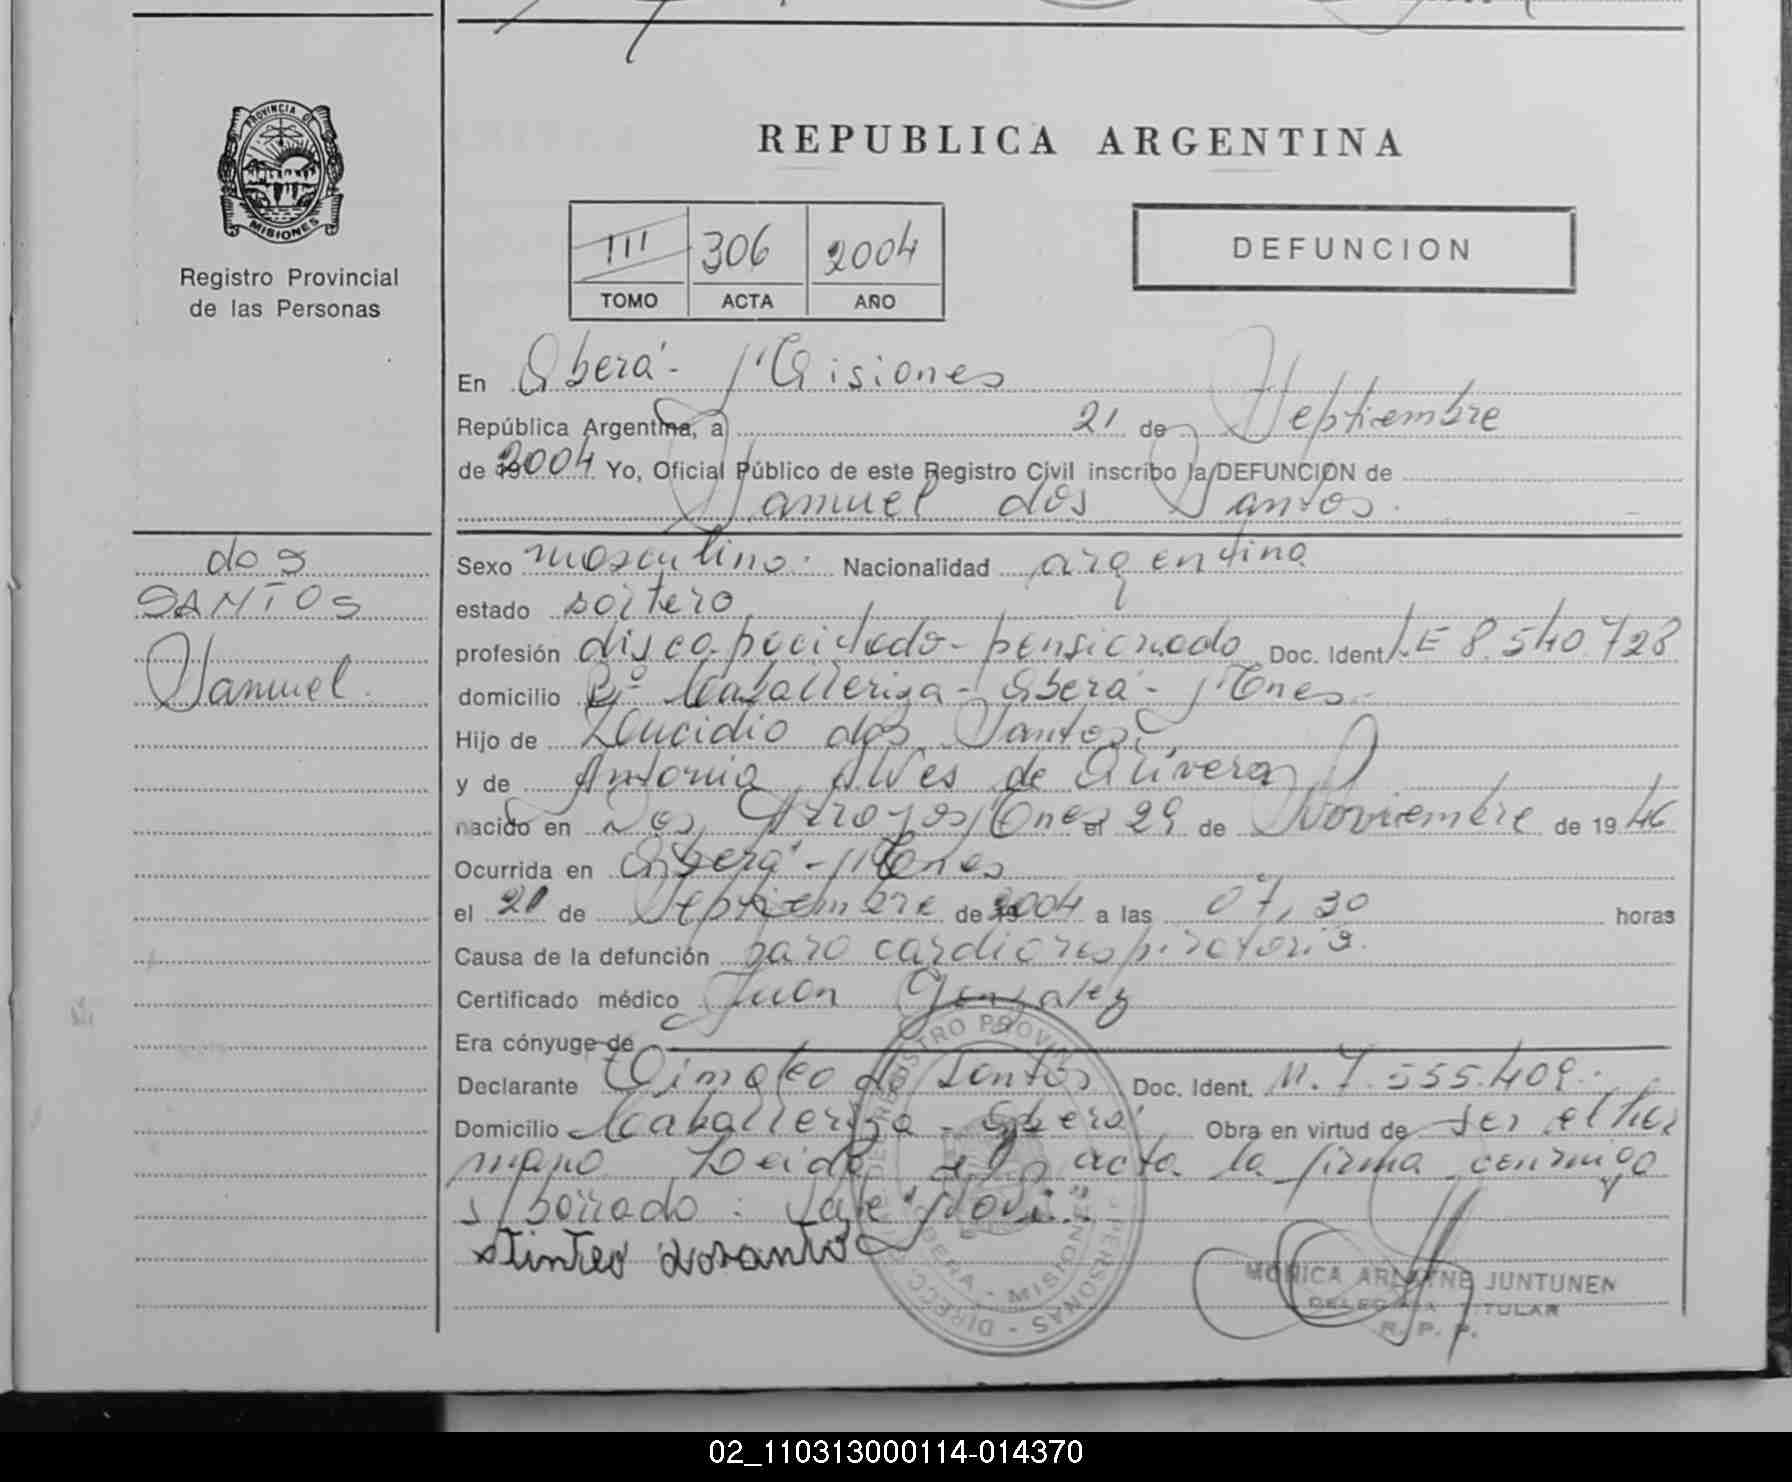 PROVINCIA DE
MISIONES
Registro Provincial
de las Personas
REPUBLICA ARGENTINA
III 306 2004
TOMO ACTA AÑO
DEFUNCION
En Oberá - Misiones
República Argentina, a 21 de Septiembre
de 2004 Yo, Oficial Público de este Registro Civil inscribo la DEFUNCION de
Samuel dos Santos.
dos
SANTOS
Samuel.
Sexo masculino. Nacionalidad argentina
estado soltero
profesión discapacitado - pensionado Doc. Ident. L.E 8.540.728
domicilio Bº Caballeriza - Oberá - Mnes.
Hijo de Leucidio dos Santos
y de Antonia Alves de Olivera
nacido en Dos Arroyos Mnes el 29 de Noviembre de 1946
Ocurrida en Oberá - Mnes
el 21 de Septiembre de 2004 a las 07,30 horas
Causa de la defunción paro cardiorespiratorio.
Certificado médico Juan Gonzalez
Era cónyuge de
Declarante dos Santos Doc. Ident. M. 7.555.409.
Domicilio Caballeriza - Oberá Obra en virtud de ser el her
mano Leida el acta la firma conmigo
s/ borrado: Vale
MONICA ARLAYNE JUNTUNEN
DELEGADA TITULAR
R. P. P.
OBERA - MISIONES
02_110313000114-014370